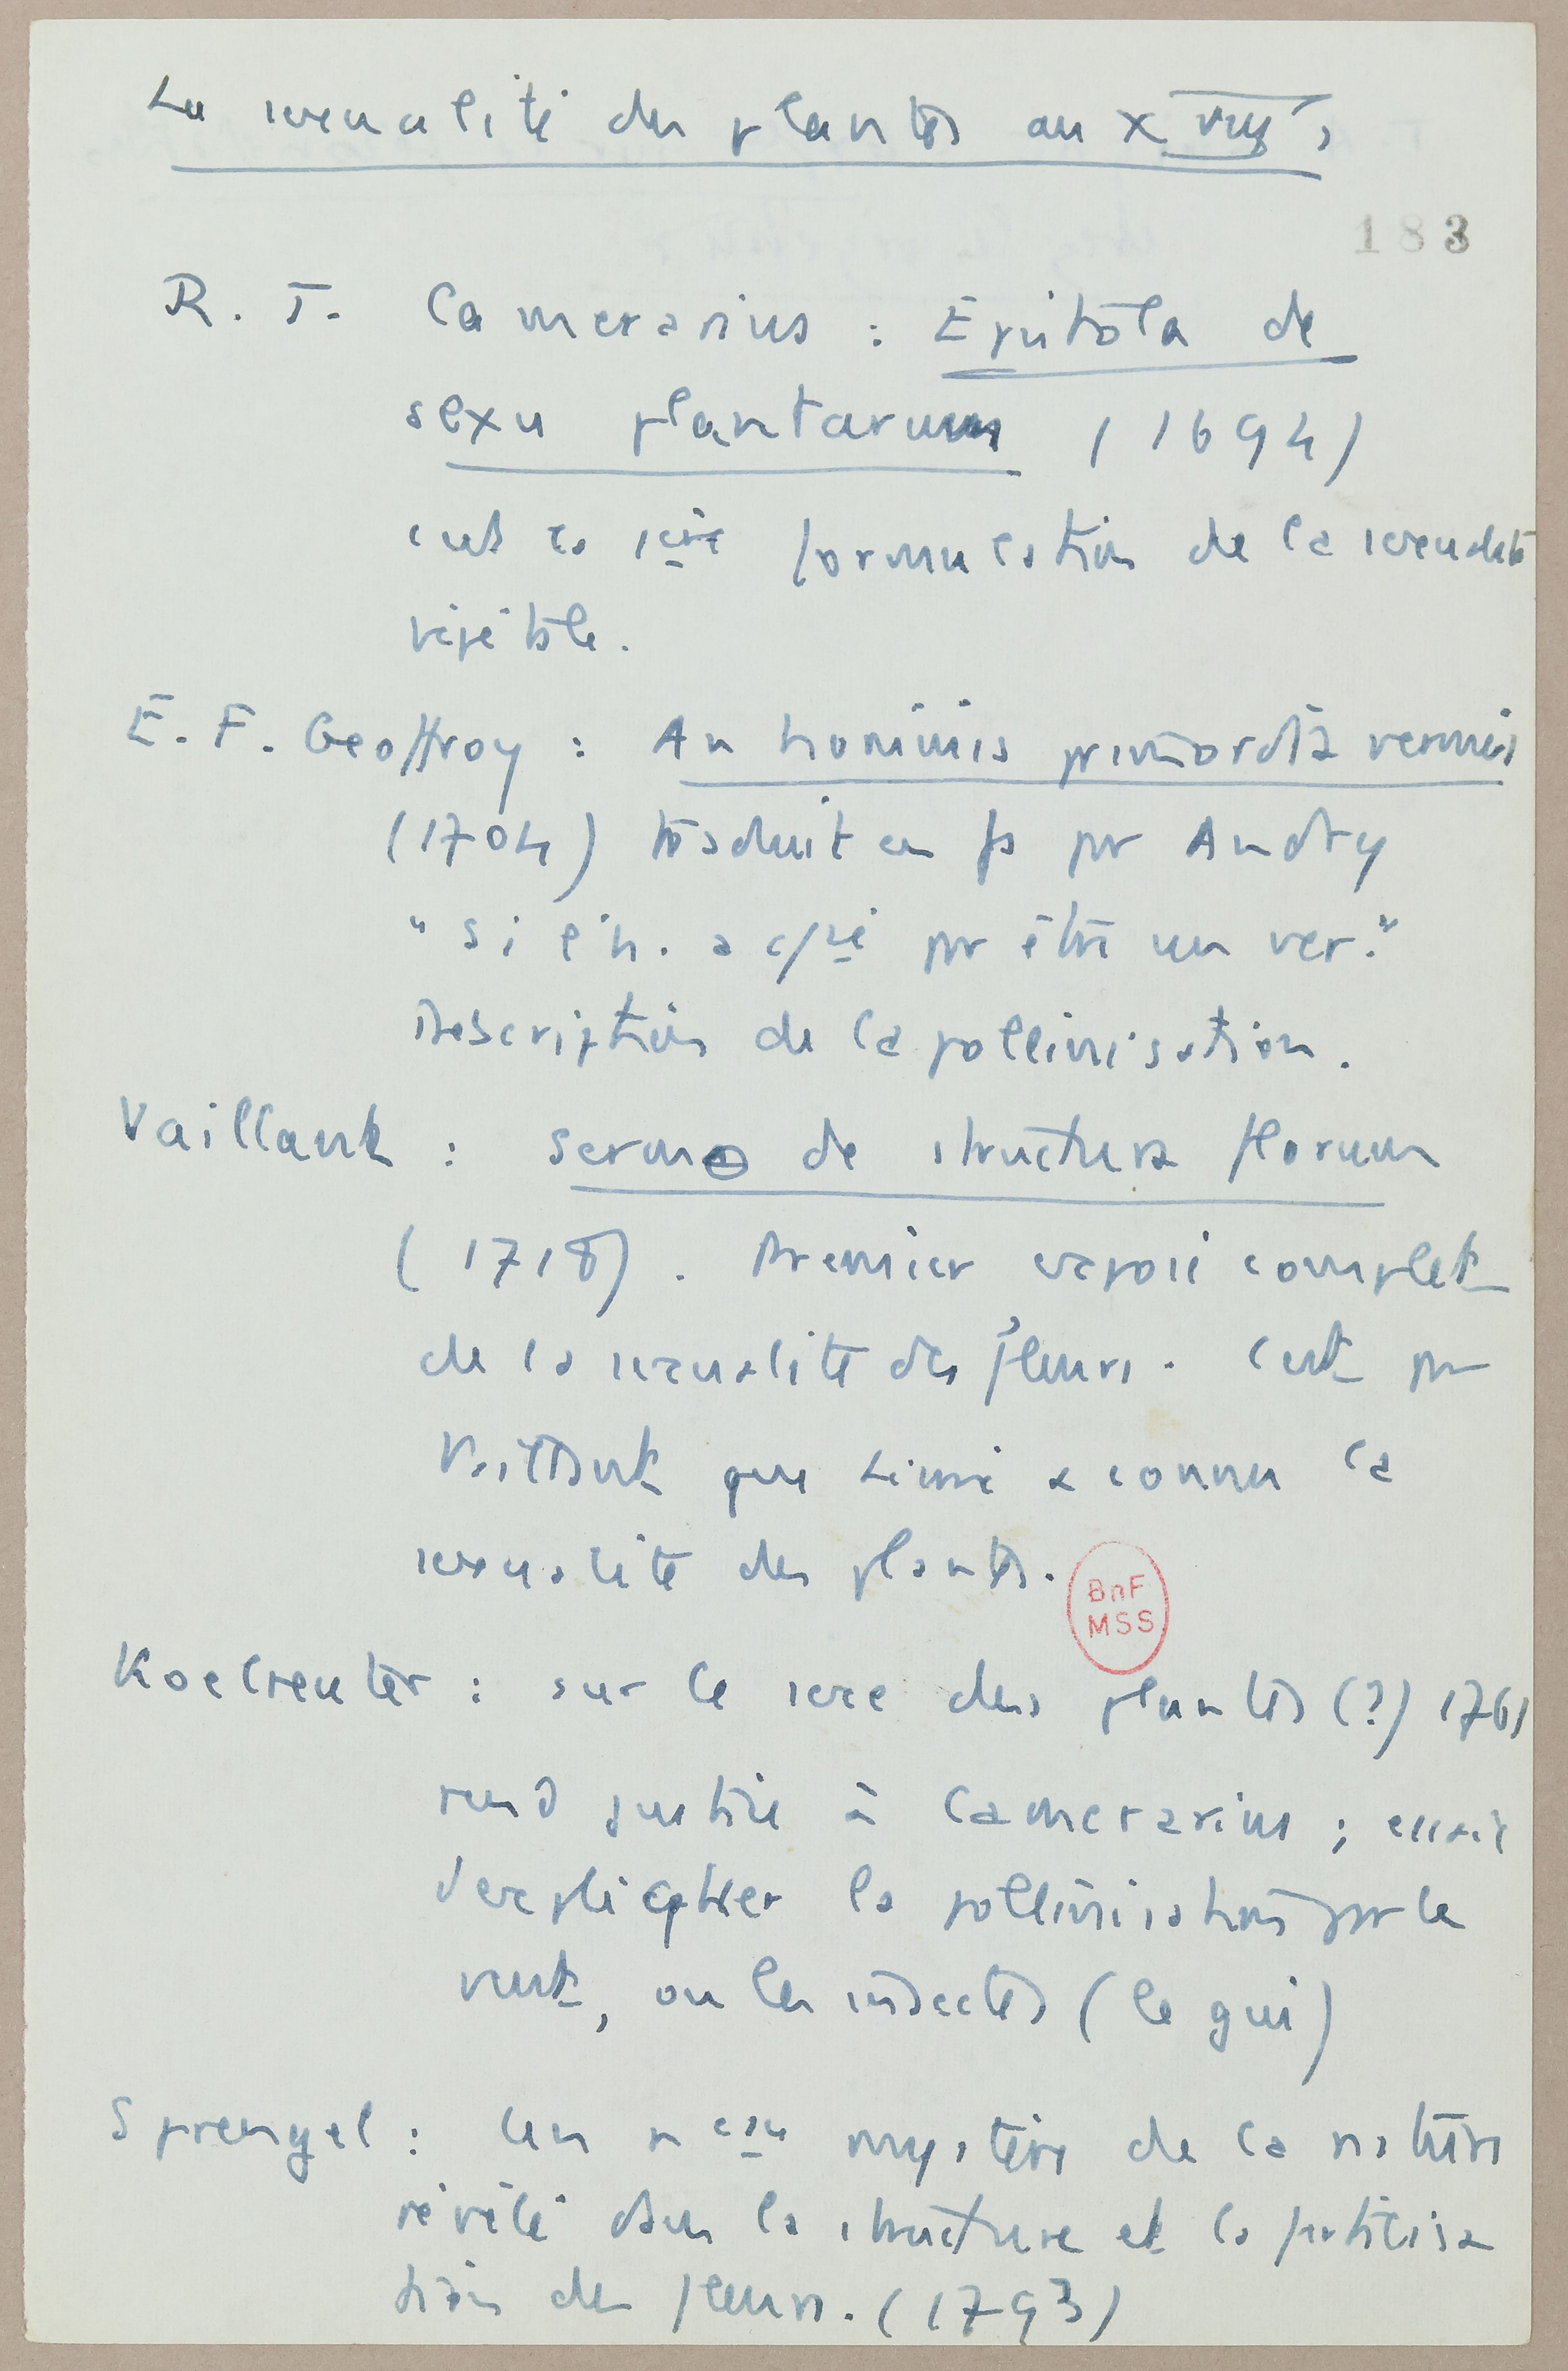 La sexualité des plantes au XVIIIe s
183
R. J. Camerarius : Epistola de
sexu plantarum (1694)
c'est la 1ère formulation de la sexualité
végétale.
E. F. Geoffroy : An hominis primordia vermis
(1704) traduit en fs par Andry
"Si l'h. a c/cé par être un ver."
Description de la pollinisation.
Vaillant : Sermo de structura florum
(1718). Premier exposé complet
de la sexualité des fleurs. C'est par
Vaillant que Linné a connu la
sexualité des plantes.
BnF
MSS
Koelreuter : sur le sexe des plantes (?) 1761
rend justice à Camerarius ; essaie
d'expliquer la pollinisation par le
vent, ou les insectes (le gui)
Sprengel : Un nveau mystère de la nature
révélé dans la structure et la fertilisa
tion des fleurs. (1793)